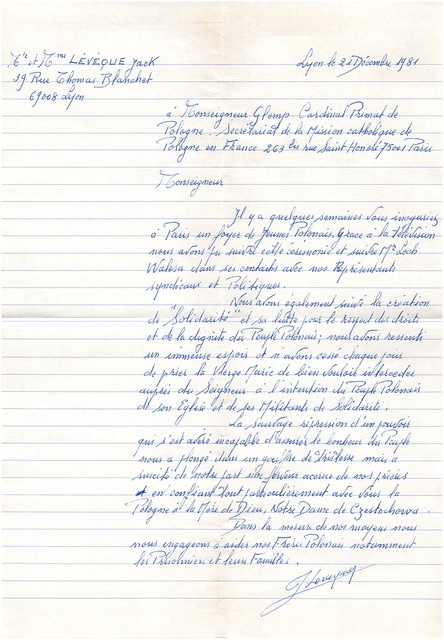 Mr et Mme LÉVÊQUE Jack
Lyon le 21 Décembre 1981
39 Rue Thomas Blanchet
69008 Lyon
à Monseigneur Glemp Cardinal Primat de
Pologne. Secrétariat de la Mission catholique de
Pologne en France 263 bis rue Saint Honoré 75001 Paris
Monseigneur
Il y a quelques semaines vous inauguriez
à Paris un foyer de Jeunes Polonais. Grace à la télévision
nous avons pu suivre cette cérémonie et suivre Mr Lech
Walesa dans ses contacts avec nos Représentants
syndicaux et Politiques.
Nous avons également suivi la création
de "Solidarité" et sa lutte pour le respect des droits
et de la dignité du Peuple Polonais; nous avons ressenti
un immense espoir et n'avons cessé chaque jour
de prier la Vierge Marie de bien vouloir intercéder
auprès du Seigneur à l'intention du Peuple Polonais
de son Eglise et de ses Militants de Solidarité.
La sauvage répression d'un pouvoir
qui s'est avéré incapable d'assurer le bonheur du Peuple
nous a plongé dans un gouffre de tristesse mais a
suscité de notre part une ferveur accrue de nos prières
en confiant tout particulièrement avec vous la
Pologne à la Mère de Dieu, Notre Dame de Czestochorva.
Dans la mesure de nos moyens nous
nous engageons à aider nos Frères Polonais notamment
les Prisonniers et leurs Familles.